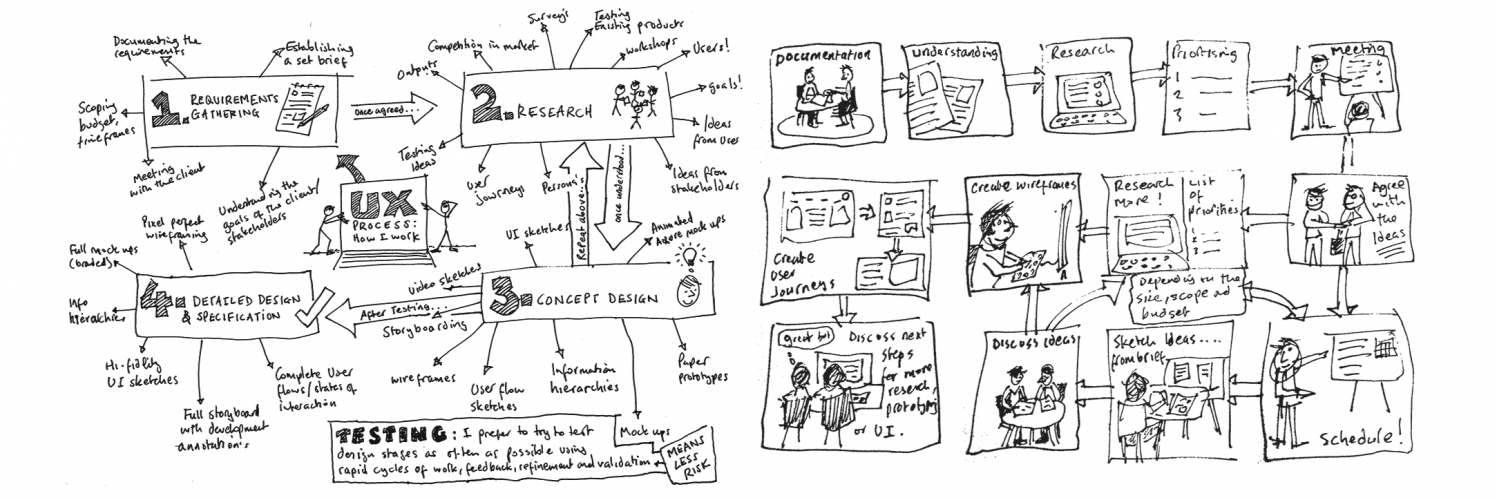 Documenting the
requirements
Establishing
a set brief
Scoping
budget,
timeframes
1. REQUIREMENTS
GATHERING
Meeting
with the client
Understanding the
goals of the client/
stakeholders
once agreed...
Surveys
Testing
Existing products
Competition in market
workshops
Users!
Outputs
goals!
2. RESEARCH
Ideas
from users
Testing
Ideas
User
journeys
Persona's
Ideas from
stakeholders
Repeat above...
once understood...
UX
PROCESS:
HOW I WORK
UI sketches
Animated
Axure mock ups
Video sketches
3. CONCEPT DESIGN
After Testing....
Storyboarding
wireframes
User flow
sketches
Information
hierarchies
Paper
prototypes
Mock ups
Pixel perfect
wireframing
Full mock ups
(braded)
Info
hierarchies
4. DETAILED DESIGN
& SPECIFICATION
Hi-fidelity
UI sketches
Full storyboard
with development
annotation's
Complete User
flows/states of
interaction
TESTING: I prefer to try to test
design stages as often as possible using
rapid cycles of work, feedback, refinement and validation
MEANS
LESS
RISK
DOCUMENTATION
understanding
Research
Prioritising
1
2
3
Meeting
Agree
with
the
Ideas
Research
More!
List
of
priorities
1
2
3
Create wireframes
Create
User
Journeys
Depending on the
size, scope ad
budget
great bot
Discuss next
steps
for more
research,
prototyping
or UI.
Discuss ideas
Sketch Ideas....
from brief,
Schedule!